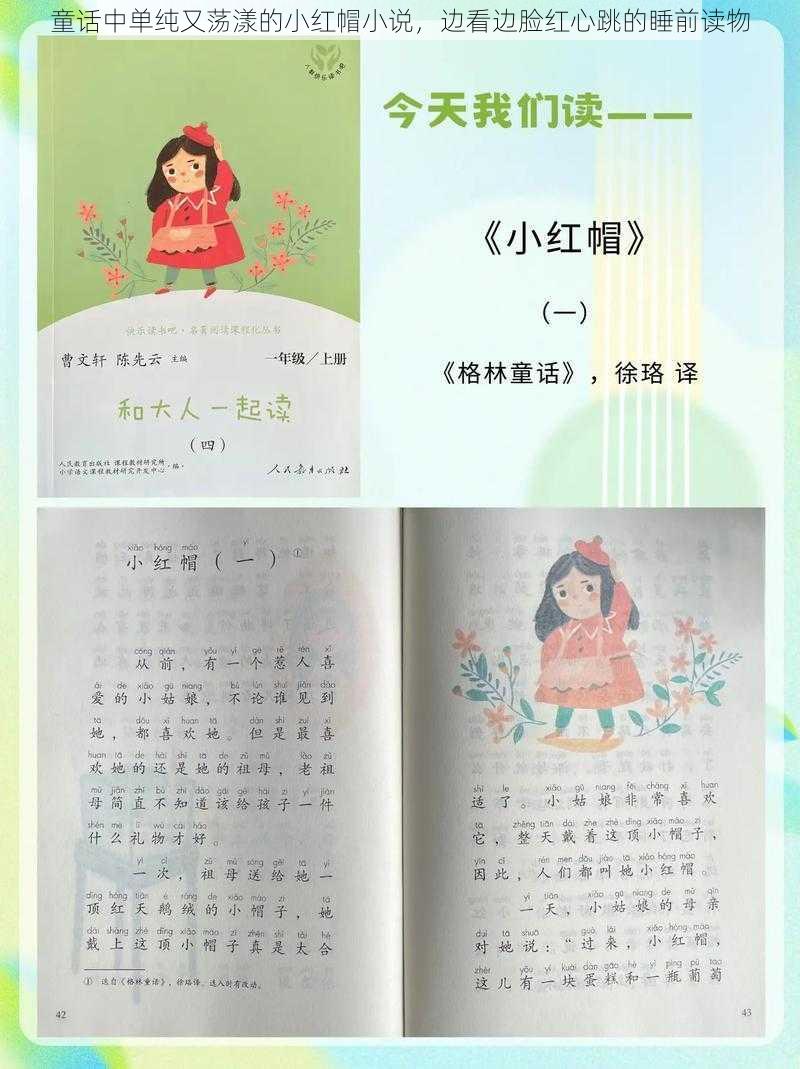 童话中单纯又荡漾的小红帽小说，边看边脸红心跳的睡前读物
人教快乐读书吧
今天我们读——
《小红帽》
（一）
《格林童话》，徐珞 译
快乐读书吧·名著阅读课程化丛书
曹文轩 陈先云 主编
一年级/上册
和大人一起读
（四）
人民教育出版社 课程教材研究所
小学语文课程教材研究开发中心·编·
人民教育出版社
xiǎo hóng mào yī
小红帽（一）①
cóng qián yǒu yí gè rě rén xǐ
从前，有一个惹人喜
ài de xiǎo gū niang bú lùn shuí jiàn dào
爱的小姑娘，不论谁见到
tā dōu xǐ huan tā dàn shì zuì xǐ
她，都喜欢她。但是最喜
huan tā de hái shì tā de zǔ mǔ lǎo zǔ
欢她的还是她的祖母，老祖
mǔ jiǎn zhí bù zhī dào gāi gěi hái zi yí jiàn
母简直不知道该给孩子一件
shén me lǐ wù cái hǎo
什么礼物才好。
yí cì zǔ mǔ sòng gěi tā yì
一次，祖母送给她一
dǐng hóng tiān é róng de xiǎo mào zi tā
顶红天鹅绒的小帽子，她
dài shàng zhè dǐng xiǎo mào zi zhēn shì tài hé
戴上这顶小帽子真是太合
① 选自《格林童话》，徐珞译。选入时有改动。
42
shì le xiǎo gū niang fēi cháng xǐ huan
适了。小姑娘非常喜欢
tā zhěng tiān dài zhe zhè dǐng xiǎo mào zi
它，整天戴着这顶小帽子，
yīn cǐ rén men dōu jiào tā xiǎo hóng mào
因此，人们都叫她小红帽。
yì tiān xiǎo gū niang de mǔ qīn
一天，小姑娘的母亲
duì tā shuō guò lái xiǎo hóng mào
对她说：“过来，小红帽，
zhèr yǒu yí kuài dàn gāo hé yì píng pú tao
这儿有一块蛋糕和一瓶葡萄
43